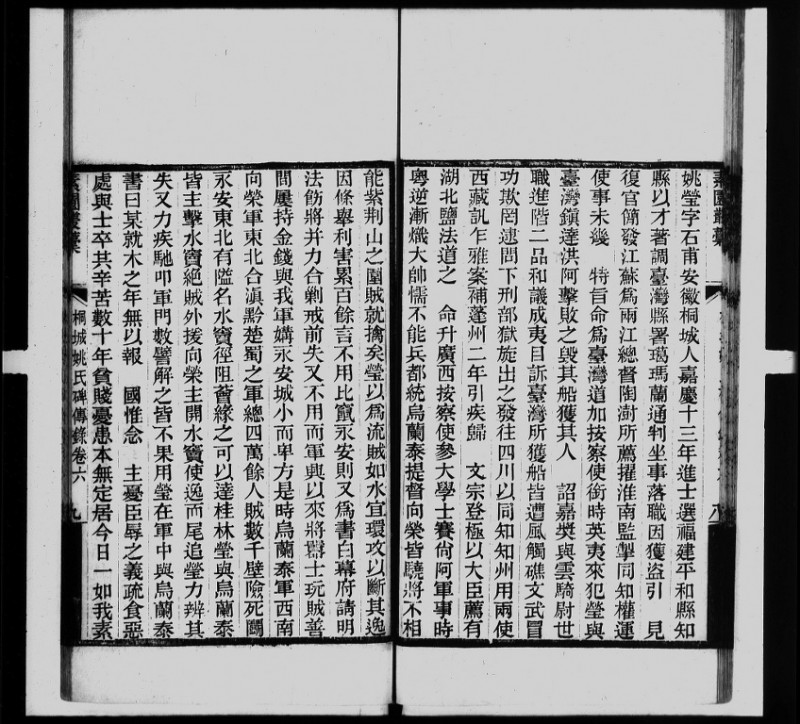 姚瑩字石甫安徽桐城人嘉慶十三年進士選福建平和縣知
縣以才著調臺灣縣署噶瑪蘭通判坐事落職因獲盜引　見
復官簡發江蘇爲兩江總督陶澍所薦擢淮南監掣同知權運
使事未幾　特旨命爲臺灣道加按察使銜時英夷來犯瑩與
臺灣鎮達洪阿擊敗之毀其船獲其人　詔嘉奬與雲騎尉世
職進階二品和議成夷目訴臺灣所獲船皆遭風觸礁文武冒
功欺罔逮問下刑部獄旋出之發往四川以同知知州用兩使
西藏訊乍雅案補蓬州二年引疾歸　文宗登極以大臣薦有
湖北鹽法道之　命升廣西按察使參大學士賽尙阿軍事時
粵逆漸熾大帥懦不能兵都統烏蘭泰提督向榮皆驍將不相
能紫荆山之圍賊就擒矣瑩以爲流賊如水宜環攻以斷其逸
因條舉利害累百餘言不用比竄永安則又爲書白幕府請明
法飭將并力合剿戒前失又不用而軍興以來將嚣士玩賊善
間屢持金錢與我軍媾永安城小而卑方是時烏蘭泰軍西南
向榮軍東北合滇黔楚蜀之軍總四萬餘人賊數千壁險死鬭
永安東北有隘名水竇徑阻薈繚之可以達桂林瑩與烏蘭泰
皆主擊水竇絕賊外援向榮主開水竇使逸而尾追瑩力辨其
失又力疾馳叩軍門數譬解之皆不果用瑩在軍中與烏蘭泰
書曰某就木之年無以報　國惟念　主憂臣辱之義疏食惡
處與士卒共辛苦數十年貧賤憂患本無定居今日一如我素
桐城姚氏碑傳錄卷六　九